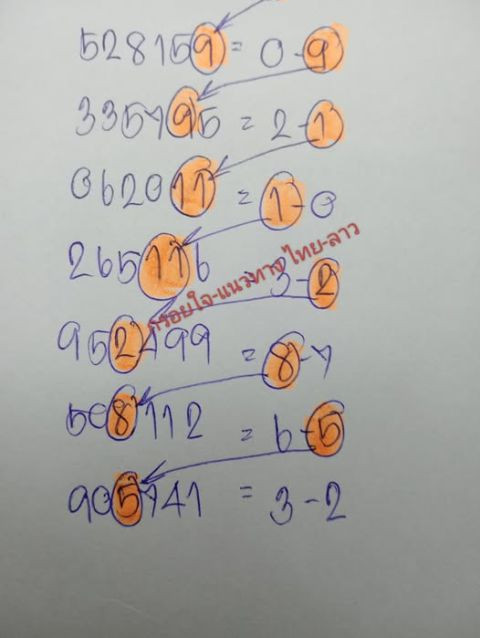 528159 = 0-9
335795 = 2-1
062011 = 1-0
265116 = 3-2
กรอบใจ-แนวทาง ไทย-ลาว
952499 = 8-7
508112 = 6-5
905741 = 3-2